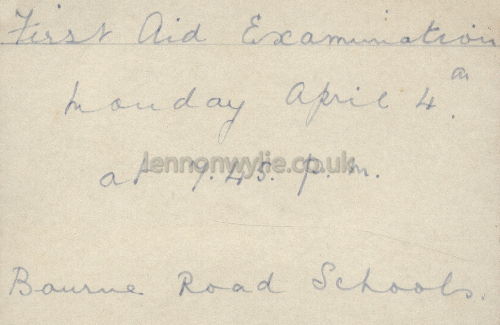 First Aid Examination
Monday April 4th.
at 7.45. p.m.
lennonwylie.co.uk
Bourne Road Schools.